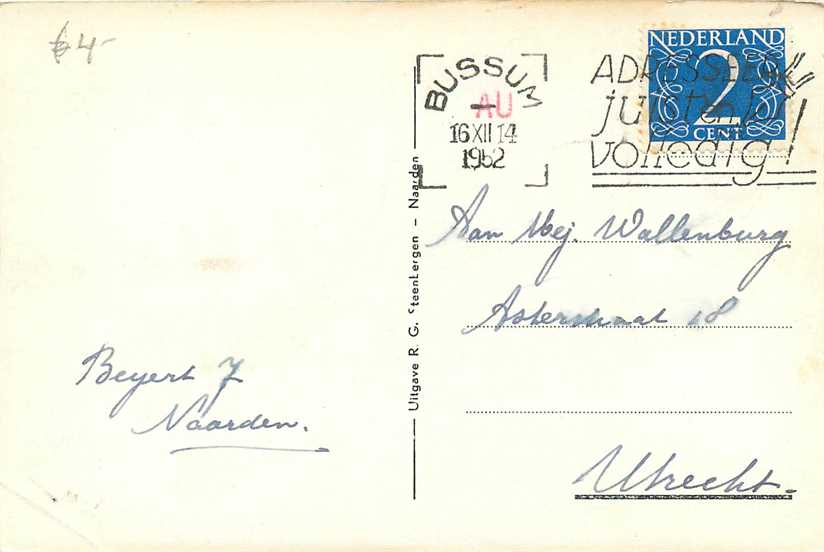 €4-
BUSSUM
AU
16 XII 14
1952
ADRESSEER
juist en
volledig!
NEDERLAND
2
CENT
Uitgave R. G. Steenbergen - Naarden
Aan Mej. Wallenburg
Asterstraat 18
Utrecht.
Beyert 7
Naarden.